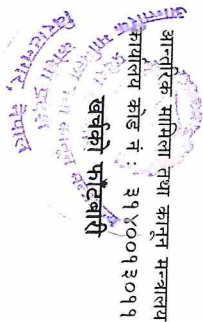 आन्तरिक मामिला तथा कानून मन्त्रालय
कार्यालय कोड नं : ३१४००१३०११
खर्चको फाँटवारी
विराटनगर, नेपाल